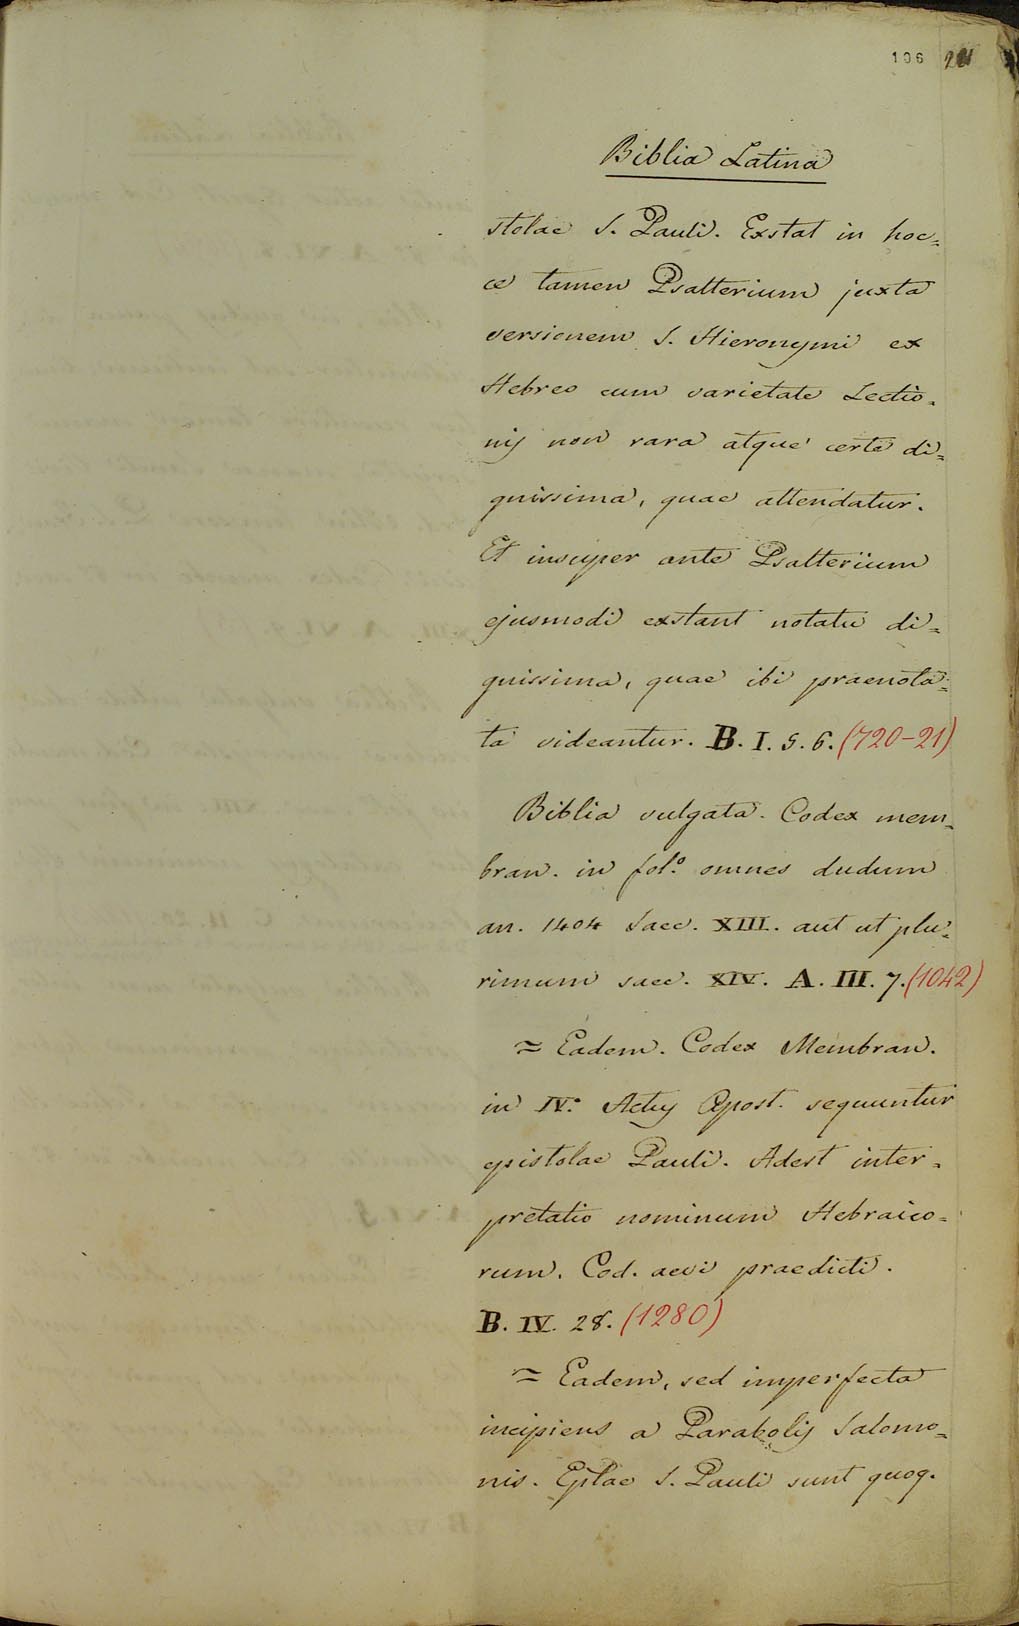 106
Biblia Latina
stolae S. Pauli. Exstat in hoc=
ce tamen Psalterium juxta
versionem S. Hieronymi ex
Hebreo cum varietate Lectio=
nis non rara atque certe di=
gnissima, quae attendatur.
Et insuper ante Psalterium
ejusmodi exstant notatu di=
gnissima, quae ibi praenota=
ta videantur. B. I. 5. 6. (720-21)
Biblia vulgata. Codex mem=
bran. in fol.º omnes dudum
an. 1404 Saec. XIII. aut ut plu=
rimum saec. XIV. A. III. 7. (1042)
≈ Eadem. Codex Membran.
in IV.º Actus Apost. sequuntur
epistolae Pauli. Adest inter=
pretatio nominum Hebraico=
rum. Cod. aevi praedicti.
B. IV. 28. (1280)
≈ Eadem, sed imperfecta
incipiens a Parabolis Salomo=
nis. Eplae S. Pauli sunt quoq.